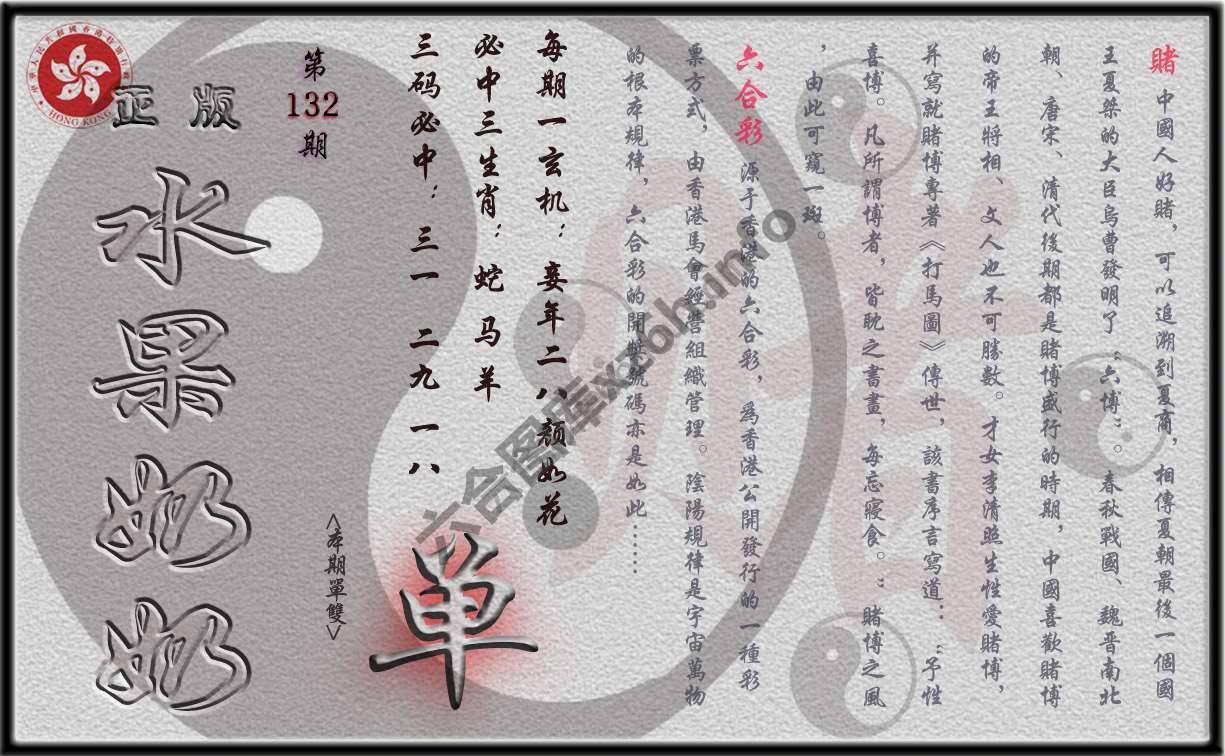 賭 中國人好賭，可以追溯到夏商，相傳夏朝最後一個國
王夏桀的大臣烏曹發明了“六博”。春秋戰國、魏晉南北
朝、唐宋、清代後期都是賭博盛行的時期，中國喜歡賭博
的帝王將相、文人也不可勝數。才女李清照生性愛賭博，
并寫就賭博專著《打馬圖》傳世，該書序言寫道：“予性
喜博。凡所謂博者，皆耽之書畫，每忘寢食。”賭博之風
，由此可窺一斑。
六合彩 源于香港的六合彩，為香港公開發行的一種彩
票方式，由香港馬會經營組織管理。陰陽規律是宇宙萬物
的根本規律，六合彩的開獎號碼亦是如此……
每期一玄机：妾年二八顏如花
必中三生肖：蛇马羊
三码必中：三一 二九 一八
单
<本期單雙>
第
132
期
正版
水果奶奶
中華人民共和國香港特別行政區
HONG KONG
六合图库xz6h.info